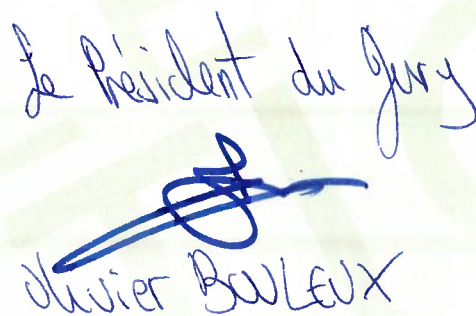 Le Président du Jury
Olivier BOULEUX